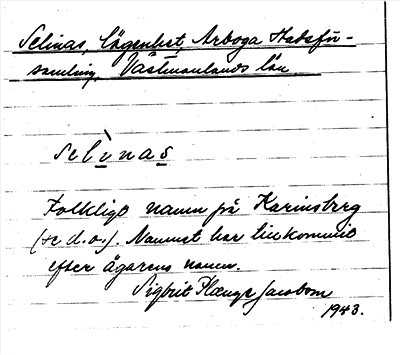 Selinas, lägenhet, Arboga stadsför-
samling, Västmanlands län
selìnas
Folkligt namn på Karinsberg
(se d.o.). Namnet har tillkommit
efter ägarens namn.
Sigbrit Plænge Jacobson
1943.